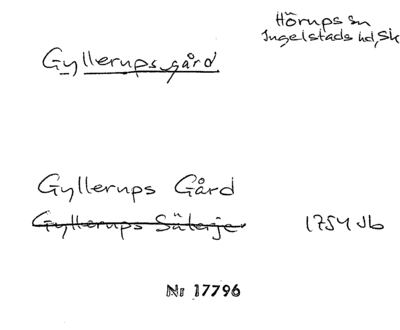 Hörups sn
Ingelstads hd, Sk
Gyllerups gård
Gyllerups Gård
Gyllerups Säterje
1754 Jb
Nr 17796